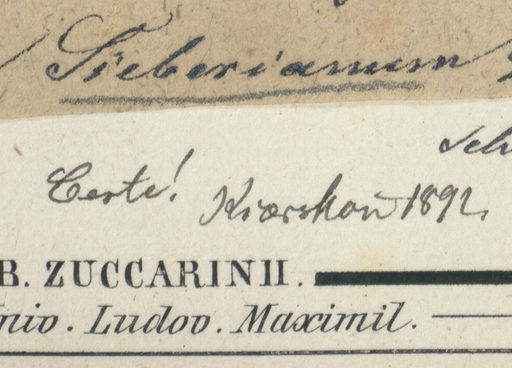 Sieberianum
Certe! Kiærskou 1892.
B. ZUCCARINII.
Ludov. Maximil.